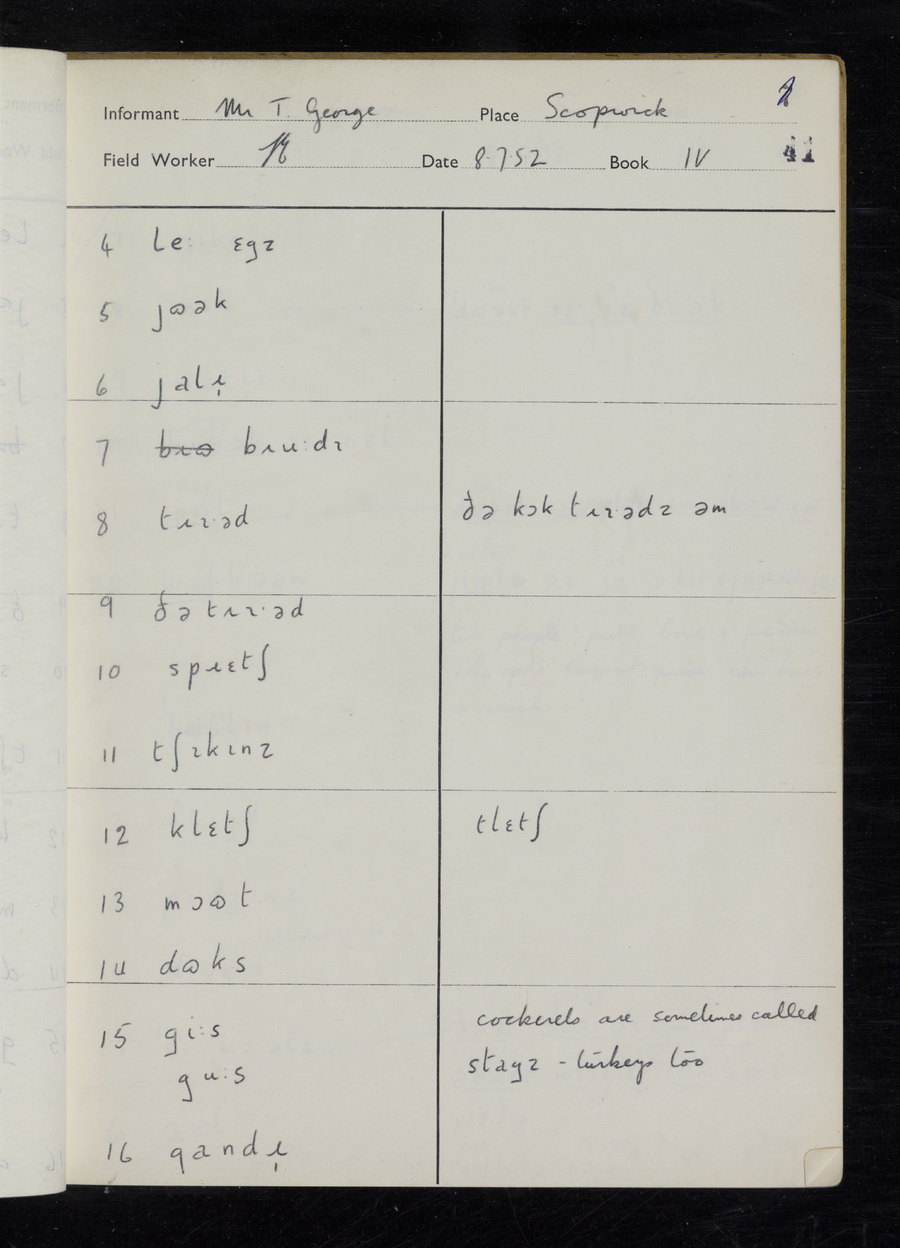 Informant Mr T. George Place Scopwick
Field Worker Date 8.7.52 Book IV 41
4 le: ɛgz
5 jɷək
6 jalɪ̣
7 bɹɷ bɹu:dz
8 tɹɪ·əd ðə kɔk tɹɪ·ədz əm
9 ðə tɹɪ·əd
10 spɹɛtʃ
11 tʃɪkɪnz
12 klɛtʃ tlɛtʃ
13 mɔɷt
14 dɷks
15 gi:s cockerels are sometimes called
gu:s stagz - turkeys too
16 gandɪ̣